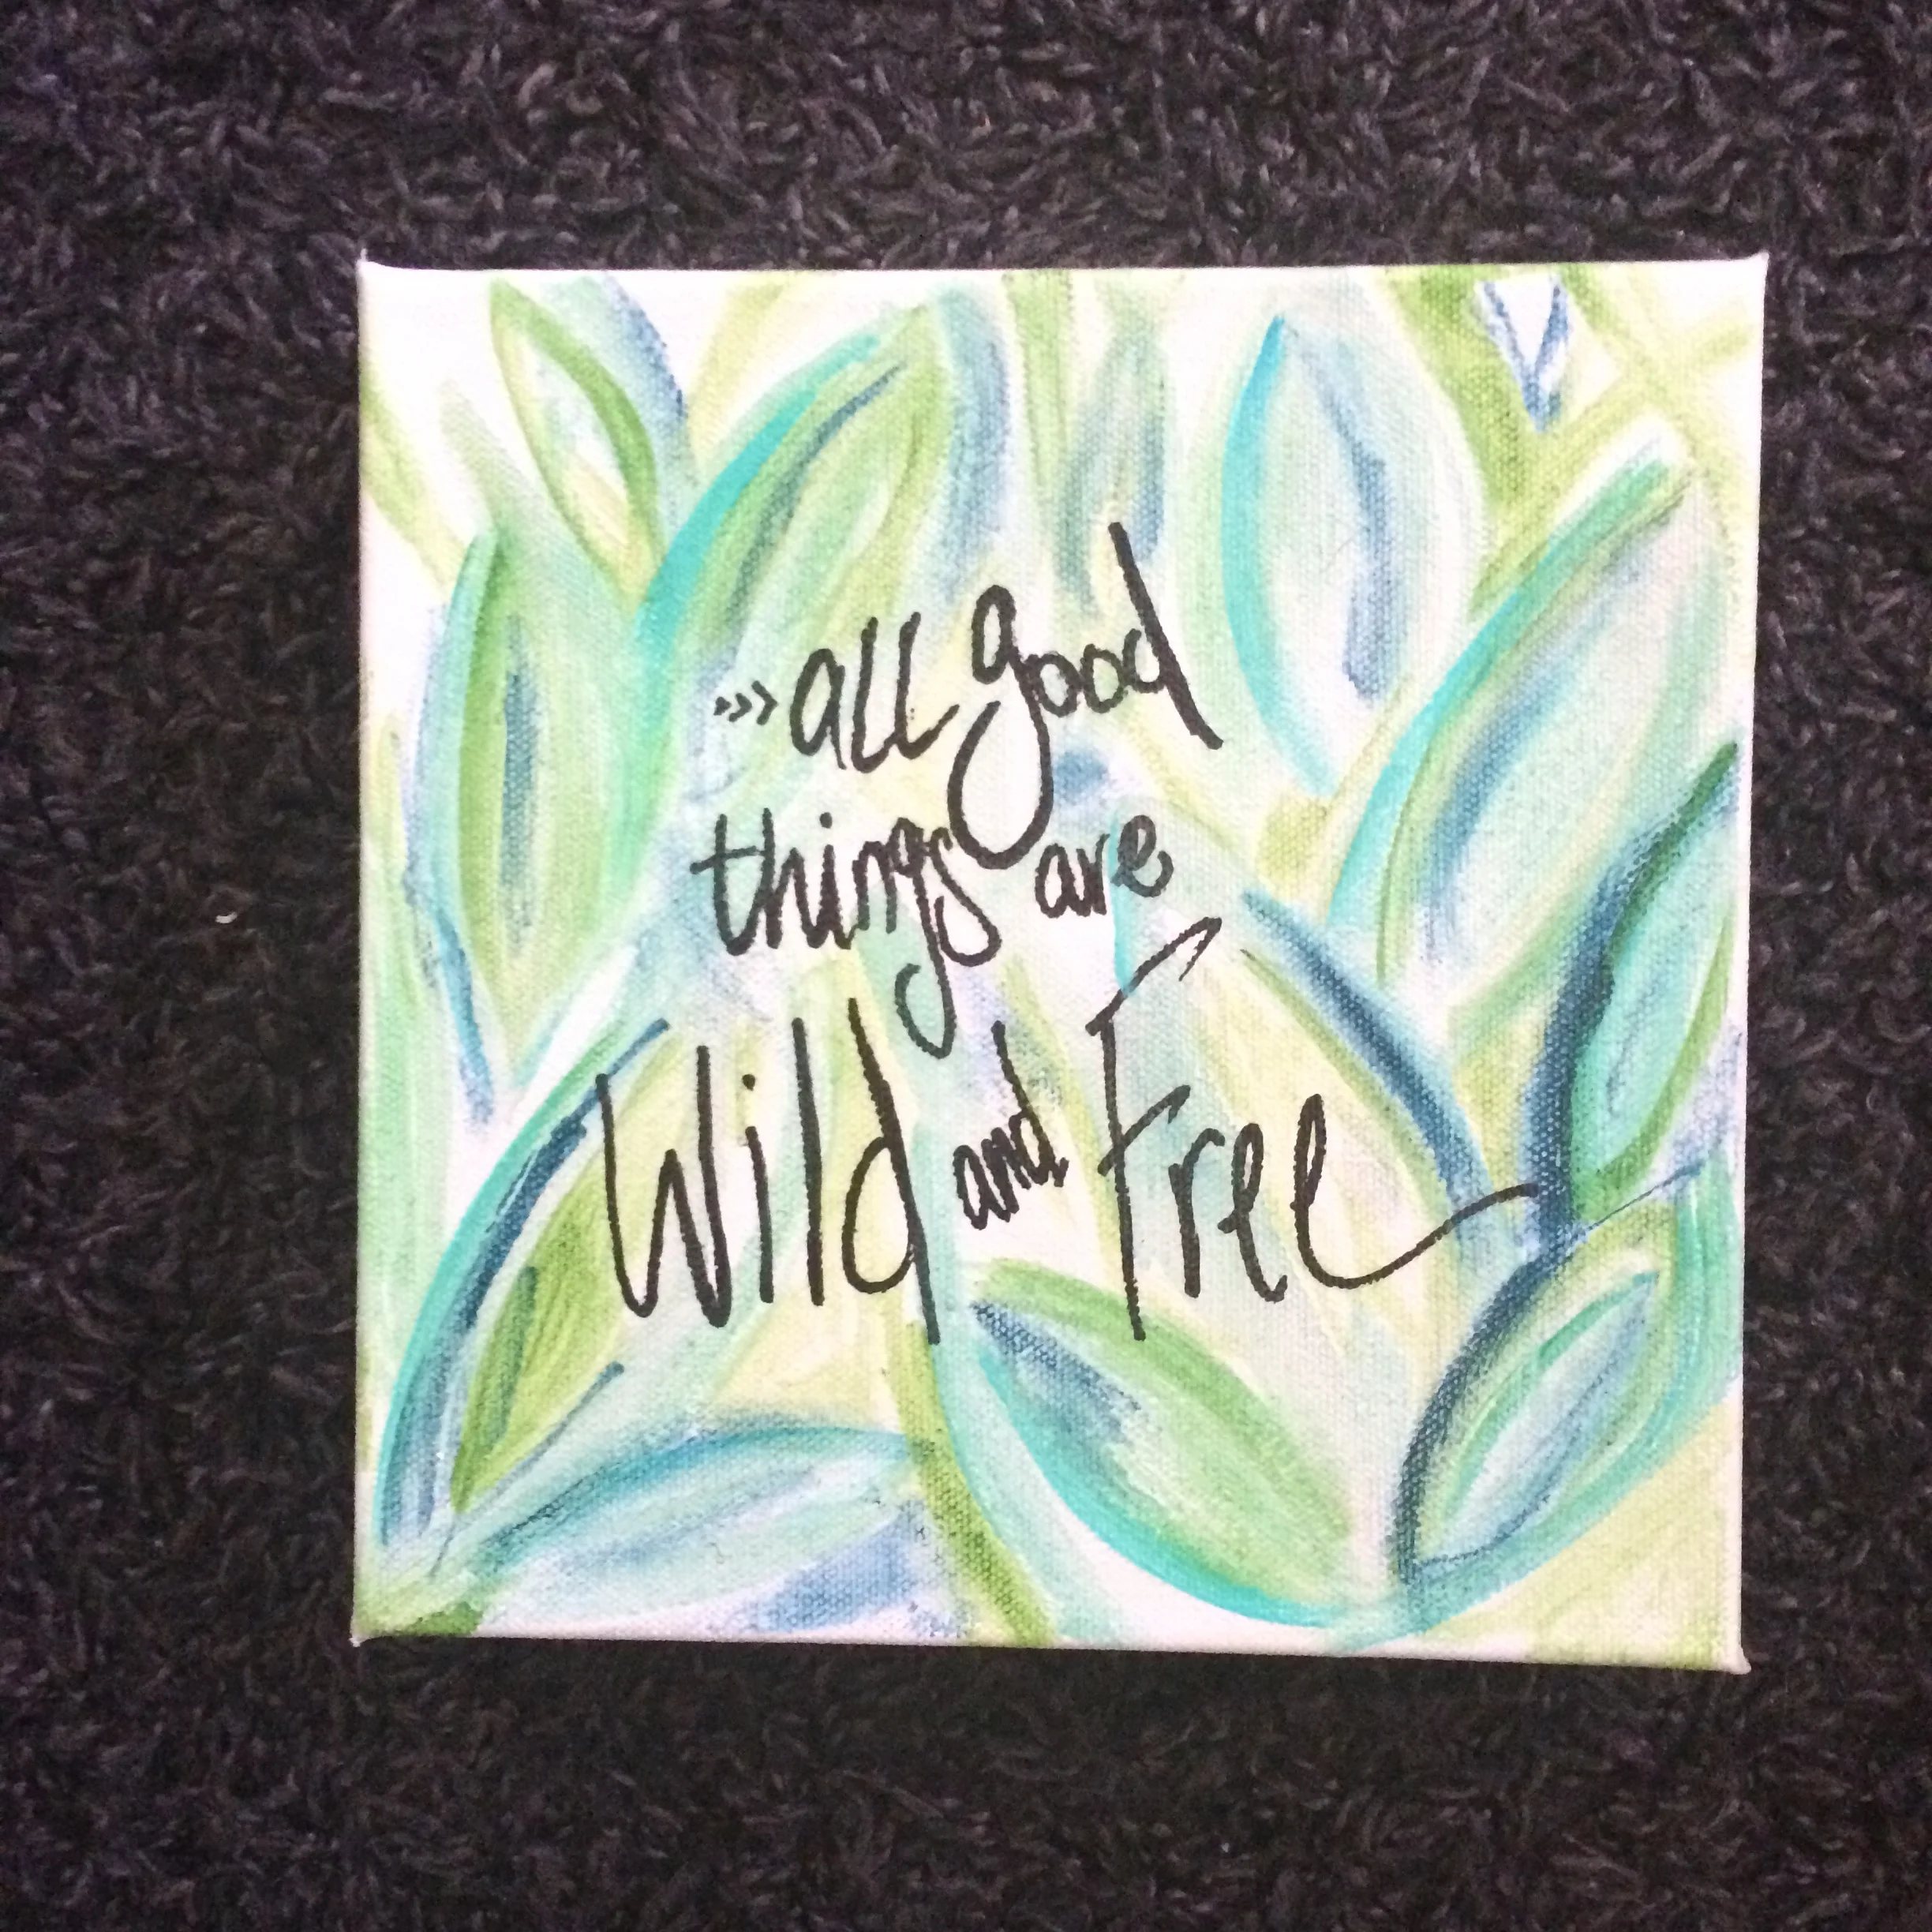 >>> all good
things are
Wild and Free